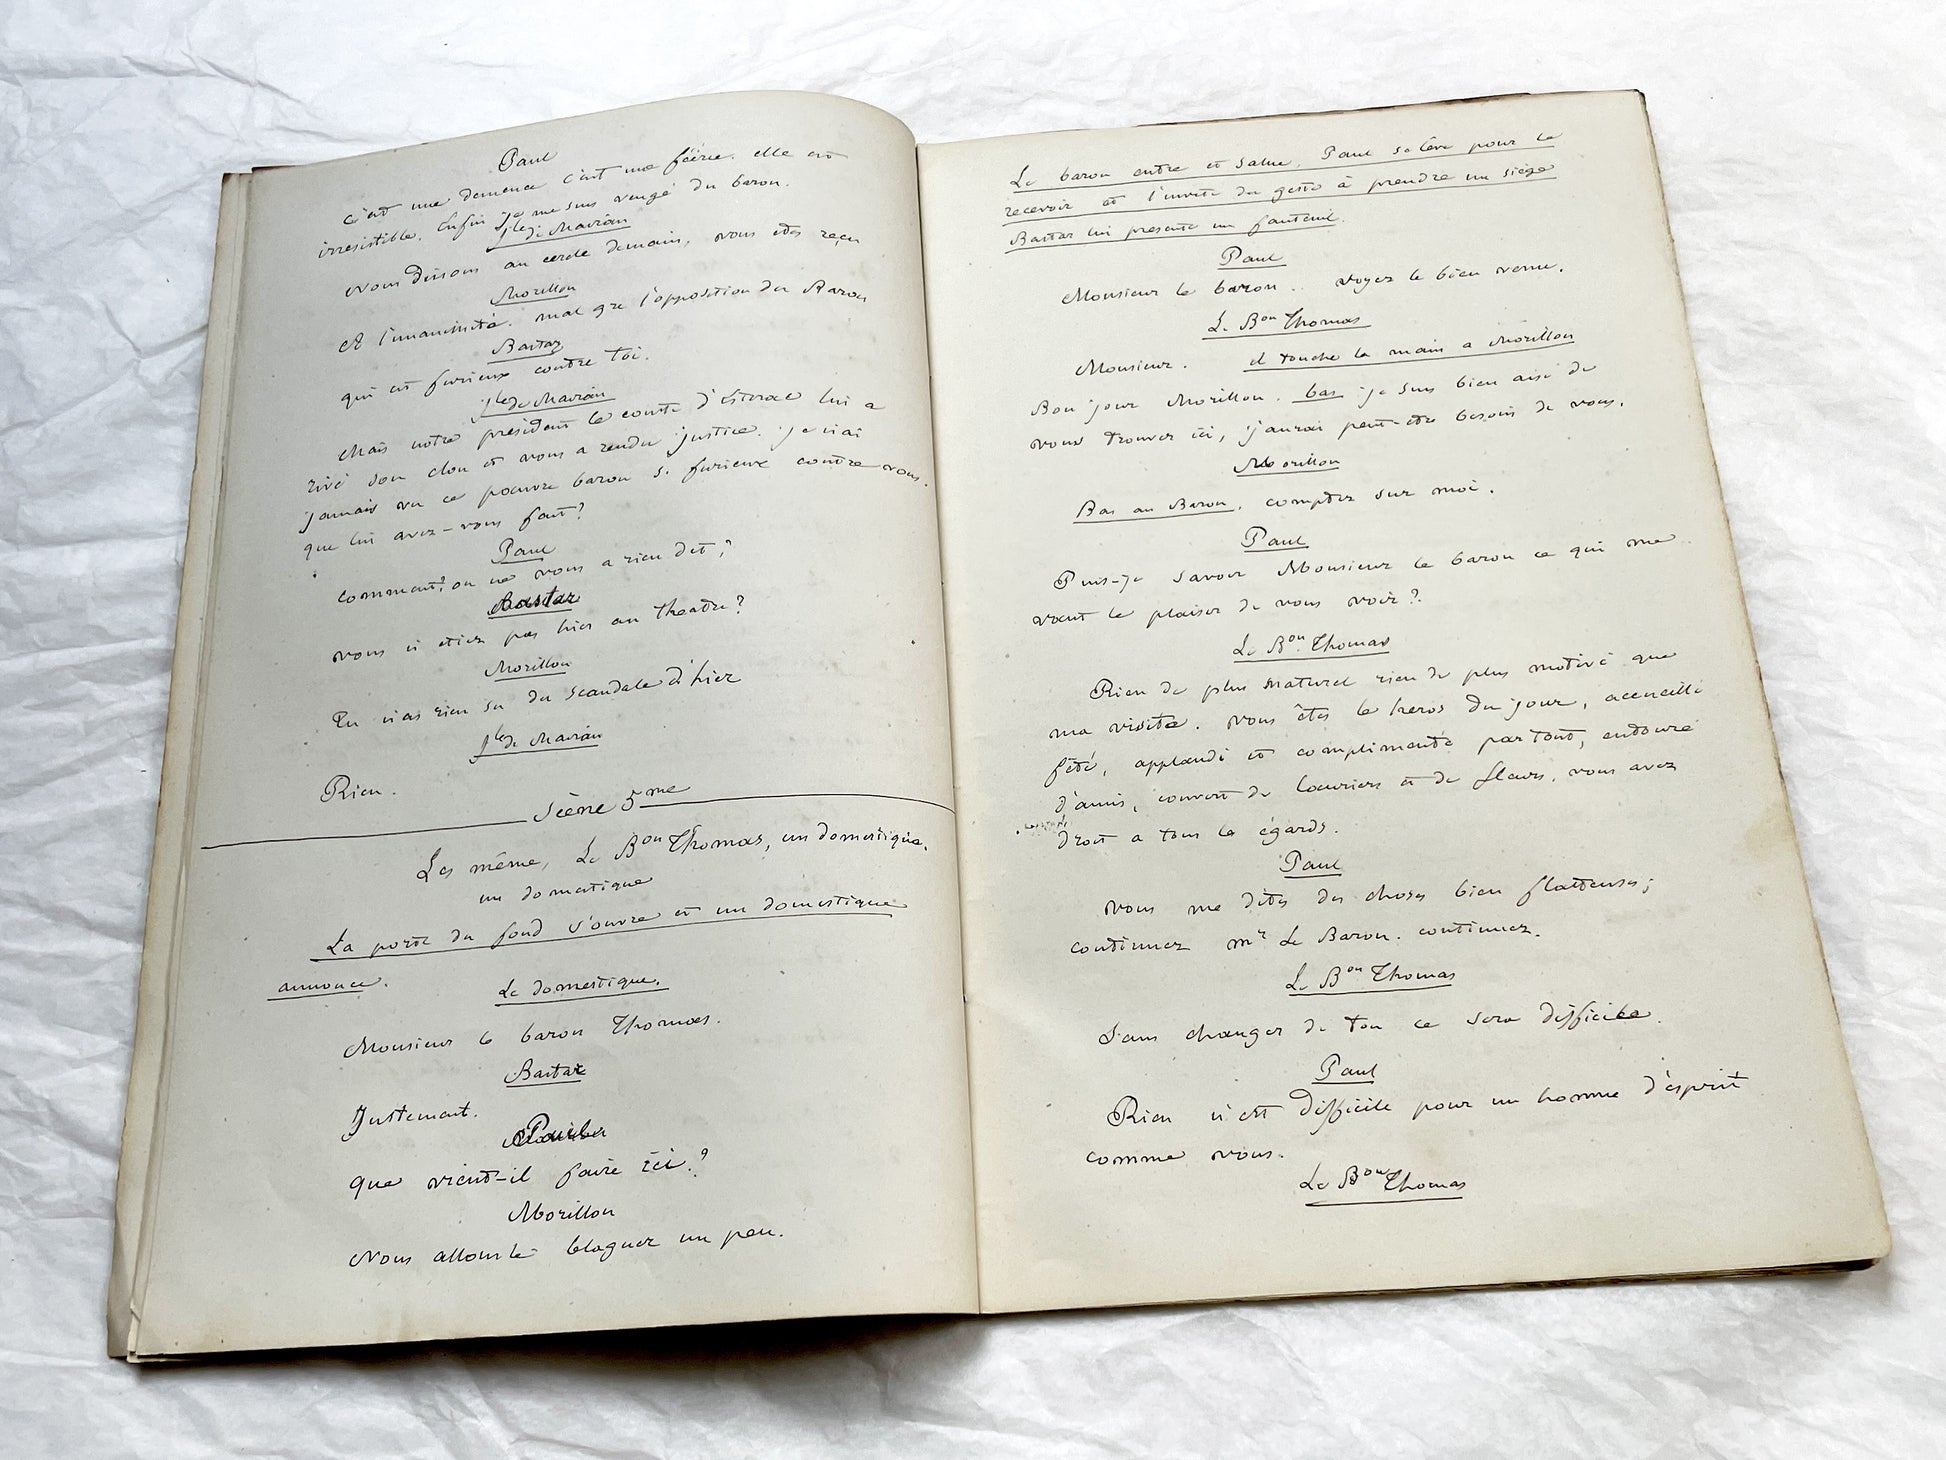 Paul
c'est une demence c'est une féérie. elle est
irresistible. Enfin je me suis vengé du baron.
Jles de Mavián
Nous dinons au cercle demain, vous etes reçu
Morillon
A l'unanimité. mal gre l'opposition du Baron
Bastar
qui est furieux contre toi.
Jles de Mavián
Mais notre president le comte d'Estorac lui a
rivé son clou et vous a rendu justice. je n'ai
jamais vu ce pauvre baron si furieux contre vous.
que lui avez-vous fait?
Paul
comment? on ne vous a rien dit?
Bastar
vous n'etiez pas hier au theatre?
Morillon
Tu n'as rien su du scandale d'hier
Jles de Mavián
Rien.
Scène 5me
Les même, Le Bon Thomas, un domestique.
un domestique
La porte du fond s'ouvre et un domestique
annonce.
Le domestique.
Monsieur le baron Thomas.
Bastar
Justement.
Paul
que vient-il faire ici?
Morillon
Nous allons le blaguer un peu.
Le baron entre et salue. Paul se lève pour le
recevoir et l'invite du geste à prendre un siége
Bastar lui presente un fauteuil.
Paul
Monsieur le baron.. soyez le bien venu.
Le Bon Thomas
Monsieur. il touche la main a Morillon
Bon jour Morillon. bas je suis bien aisé de
vous trouver ici, j'aurai peut-etre besoin de vous.
Morillon
Bas au Baron. comptez sur moi.
Paul
Puis-je savoir Monsieur le baron ce qui me
vaut le plaisir de vous voir?
Le Bon Thomas
Rien de plus naturel rien de plus motivé que
ma visite. vous êtes le heros du jour, accueilli
fêté, applaudi et complimenté partout, entouré
d'amis, couvert de lauriers et de fleurs, vous avez
droit a tous le égards.
Paul
vous me dites des choses bien flatteuses;
continuez mr Le Baron. continuez.
Le Bon Thomas
Sans changer de ton ce sera difficile.
Paul
Rien n'est difficile pour un homme d'esprit
comme vous.
Le Bon Thomas